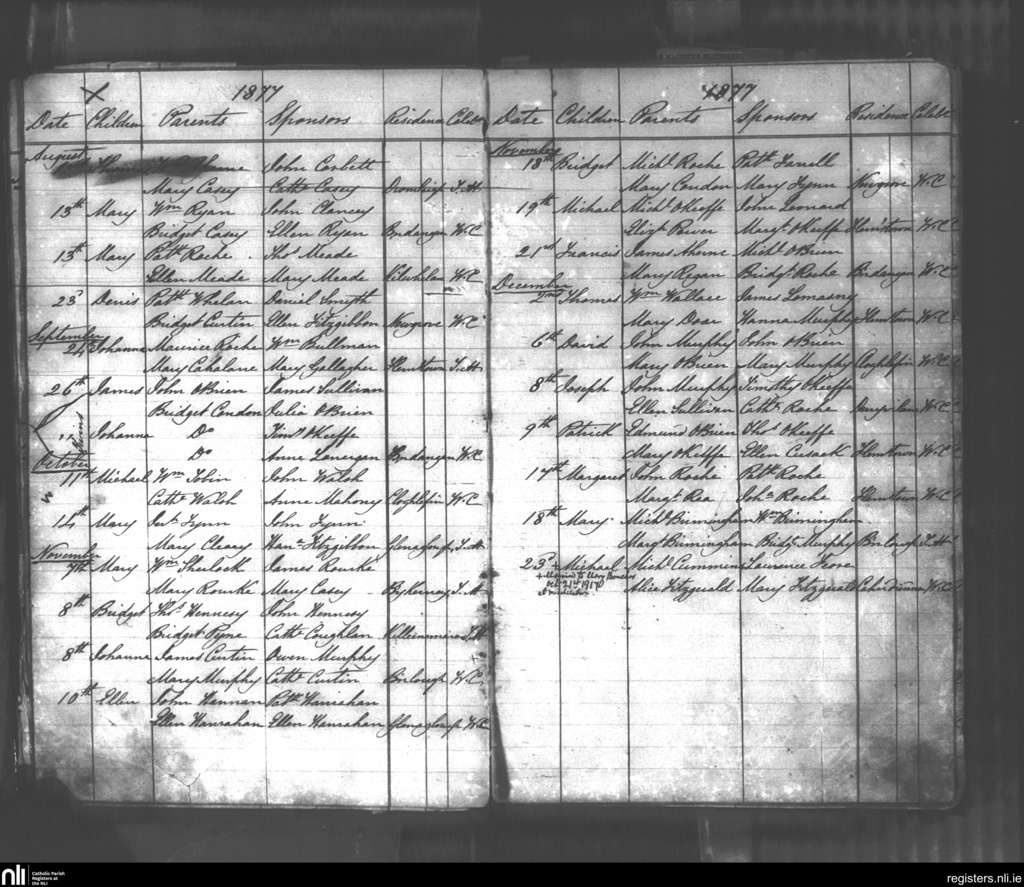 1877
Date Children Parents Sponsors Residence Celebt
August
John Corbett
Mary Casey Cathe Casey T.H
13th Mary Wm Ryan John Clancey
Bridget Casey Ellen Ryan Bndangan W.C
13th Mary Patk Roche Thos Meade
Ellen Meade Mary Meade W.C
23d Denis Patk Whelan Daniel Smyth
Bridget Curtin Ellen Fitzgibbon Newgrove W.C
September
24th Johanna Maurice Roche Wm Bullman
Mary Cahalane Mary Gallagher T.H
26th James John OBrien James Sullivan
Bridget Condon Julia OBrien
" Johanna Do Timy OKeeffe
Do Anne Lonergan Bndangan W.C
October
11th Michael Wm Tobin John Walsh
Cathe Walsh Anne Mahony W.C
14th Mary Flynn John Flynn
Mary Cleary Hana Fitzgibbon T.H
November
7th Mary Wm Sherlock James Rourke
Mary Rourke Mary Casey T.H
8th Bridget Thos Hennesy John Hennesy
Bridget Pyne Cathe Coughlan T.H
8th Johanna James Curtin Owen Murphy
Mary Murphy Cathe Curtin W.C
10th Ellen John Hannan Patk Hanrahan
Ellen Hanrahan Ellen Hanrahan W.C
1877
Date Children Parents Sponsors Residence Celebt
November
18th Bridget Michl Roche Patk Farrell
Mary Condon Mary Flynn Newgrove W.C
19th Michael Michl OKeeffe John Leonard
Margt OKeeffe W.C
21st Francis James Aherne Michl OBrien
Mary Regan Bridgt Roche Bndangan W.C
December
2nd Thomas Wm Wallace James Lomasny
Mary Hanna Murphy W.C
6th David John Murphy John OBrien
Mary OBrien Mary Murphy W.C
8th Joseph John Murphy Timothy OKeeffe
Ellen Sullivan Cathe Roche W.C
9th Patrick Edmund OBrien Thos OKeeffe
Mary OKeeffe Ellen Cusack W.C
17th Margaret John Roche Patk Roche
Margt Rea Joha Roche W.C
18th Mary Michl Birmingham Wm Birmingham
Margt Birmingham Bridgt Murphy T.H
23d + Michael Michl Cummins Laurence
+ Married to Mary
Oct 21st 1917
Alice Fitzgerald Mary Fitzgerald W.C
nli Catholic Parish
Registers at
the NLI
registers.nli.ie